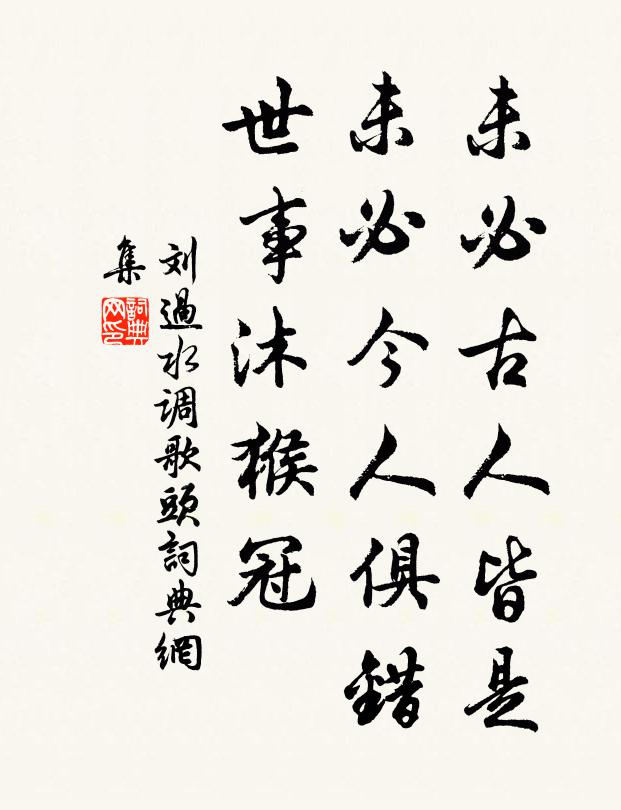 未必古人皆是
未必今人俱錯
世事沐猴冠
刘過水调歌頭詞典網
集
詞典
网印